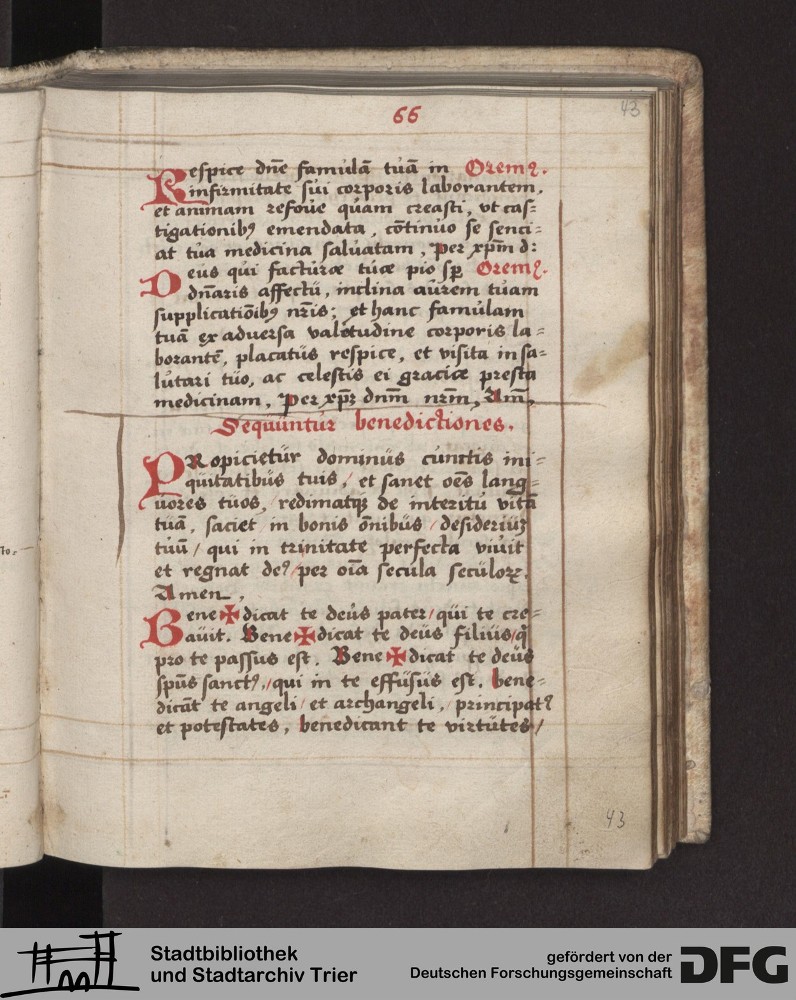 66
43
Respice dn̄e famulā tuā in Oremꝰ.
infirmitate sui corporis laborantem,
et animam refoue quam creasti, vt cas=
tigationibꝰ emendata, cōtinuo se senci=
at tua medicina saluatam, Per xp̄m d:
Deus qui facturæ tuæ pio sp̄ Oremꝰ.
dn̄aris affectu, inclina aurem tuam
supplicatiōibꝰ nr̄is; et hanc famulam
tuā ex aduersa valetudine corporis la=
borantē, placatus respice, et visita in sa=
lutari tuo, ac celestis ei graciæ presta
medicinam, Per xp̄ꝫ dnm̄ nr̄m, Am̄,
Sequuntur benedictiones.
PRopicietur dominus cunctis ini=
quitatibus tuis, et sanet oēs lang=
uores tuos, redimatqꝫ de interitu vitā
tuā, saciet in bonis ōnibus / desideriuꝫ
tuū / qui in trinitate perfecta viuit
et regnat deꝰ / per oīa secula seculoꝝ.
Amen.
Bene✠dicat te deus pater / qui te cre=
auit. Bene✠dicat te deus filius / q̄
pro te passus est. Bene✠dicat te deus
spūs sanctꝰ, / qui in te effusus est. bene=
dicāt te angeli / et archangeli, / principatꝰ
et potestates, benedicant te virtutes /
43
Stadtbibliothek
und Stadtarchiv Trier
gefördert von der
Deutschen Forschungsgemeinschaft
DFG